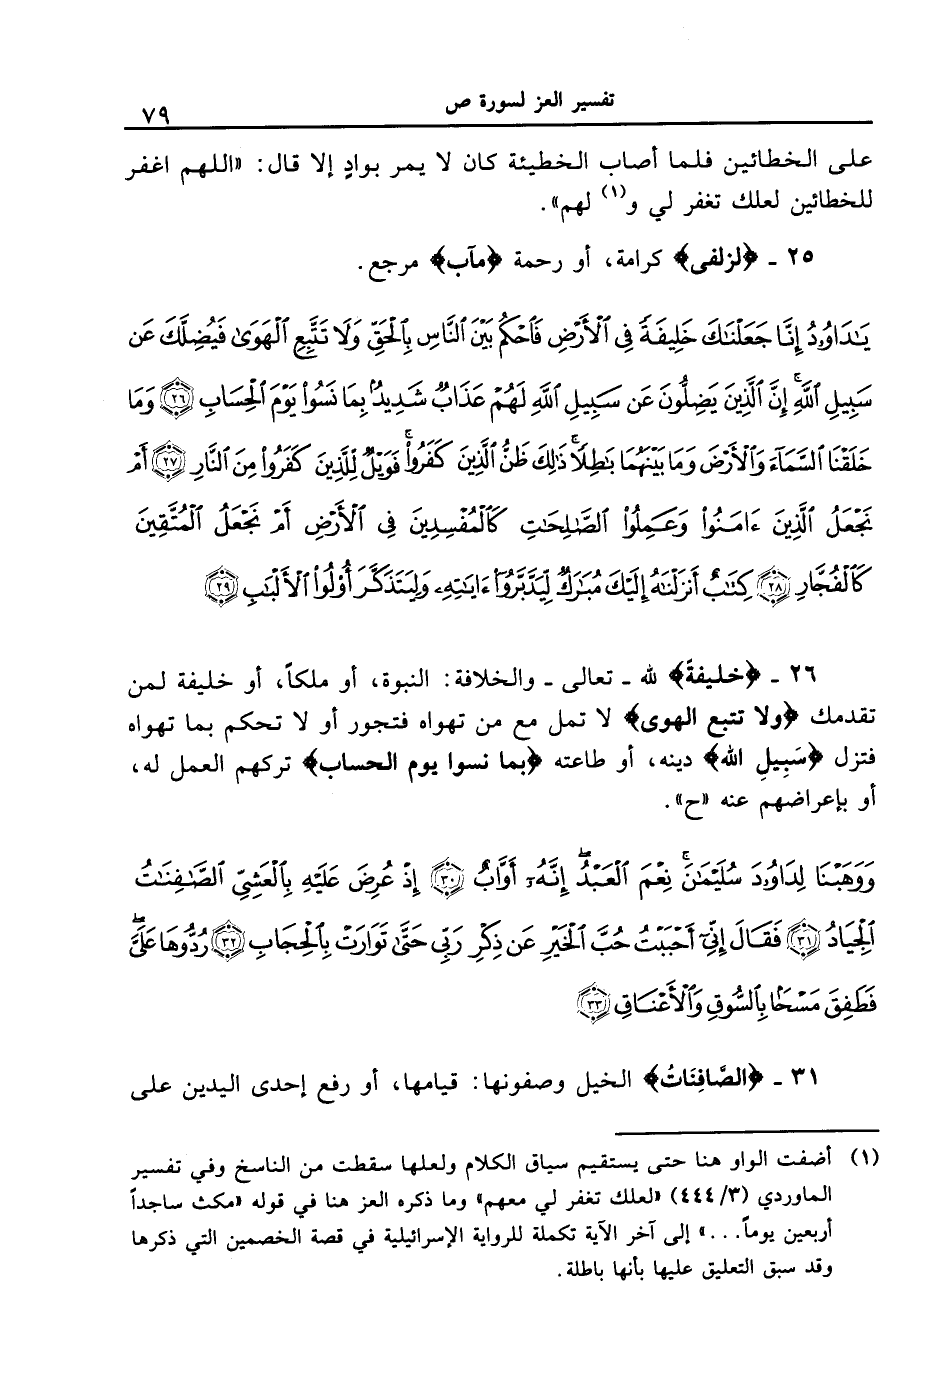 تفسير العز لسورة ص
٧٩
على الخطائين فلما أصاب الخطيئة كان لا يمر بوادٍ إلا قال: «اللهم اغفر
للخطائين لعلك تغفر لي و(١) لهم».
٢٥ ـ ﴿لزلفى﴾ كرامة، أو رحمة ﴿مآب﴾ مرجع.
يَٰدَاوُۥدُ إِنَّا جَعَلْنَٰكَ خَلِيفَةً فِى ٱلْأَرْضِ فَٱحْكُم بَيْنَ ٱلنَّاسِ بِٱلْحَقِّ وَلَا تَتَّبِعِ ٱلْهَوَىٰ فَيُضِلَّكَ عَن
سَبِيلِ ٱللَّهِ ۚ إِنَّ ٱلَّذِينَ يَضِلُّونَ عَن سَبِيلِ ٱللَّهِ لَهُمْ عَذَابٌ شَدِيدٌۢ بِمَا نَسُوا۟ يَوْمَ ٱلْحِسَابِ ﴿٢٦﴾ وَمَا
خَلَقْنَا ٱلسَّمَآءَ وَٱلْأَرْضَ وَمَا بَيْنَهُمَا بَٰطِلًا ۚ ذَٰلِكَ ظَنُّ ٱلَّذِينَ كَفَرُوا۟ ۚ فَوَيْلٌ لِّلَّذِينَ كَفَرُوا۟ مِنَ ٱلنَّارِ ﴿٢٧﴾ أَمْ
نَجْعَلُ ٱلَّذِينَ ءَامَنُوا۟ وَعَمِلُوا۟ ٱلصَّٰلِحَٰتِ كَٱلْمُفْسِدِينَ فِى ٱلْأَرْضِ أَمْ نَجْعَلُ ٱلْمُتَّقِينَ
كَٱلْفُجَّارِ ﴿٢٨﴾ كِتَٰبٌ أَنزَلْنَٰهُ إِلَيْكَ مُبَٰرَكٌ لِّيَدَّبَّرُوٓا۟ ءَايَٰتِهِۦ وَلِيَتَذَكَّرَ أُو۟لُوا۟ ٱلْأَلْبَٰبِ ﴿٢٩﴾
٢٦ ـ ﴿خليفةً﴾ لله ـ تعالى ـ والخلافة: النبوة، أو ملكاً، أو خليفة لمن
تقدمك ﴿ولا تتبع الهوى﴾ لا تمل مع من تهواه فتجور أو لا تحكم بما تهواه
فتزل ﴿سَبِيلِ الله﴾ دينه، أو طاعته ﴿بما نسوا يوم الحساب﴾ تركهم العمل له،
أو بإعراضهم عنه «ح».
وَوَهَبْنَا لِدَاوُۥدَ سُلَيْمَٰنَ ۚ نِعْمَ ٱلْعَبْدُ ۖ إِنَّهُۥٓ أَوَّابٌ ﴿٣٠﴾ إِذْ عُرِضَ عَلَيْهِ بِٱلْعَشِىِّ ٱلصَّٰفِنَٰتُ
ٱلْجِيَادُ ﴿٣١﴾ فَقَالَ إِنِّىٓ أَحْبَبْتُ حُبَّ ٱلْخَيْرِ عَن ذِكْرِ رَبِّى حَتَّىٰ تَوَارَتْ بِٱلْحِجَابِ ﴿٣٢﴾ رُدُّوهَا عَلَىَّ ۖ
فَطَفِقَ مَسْحًۢا بِٱلسُّوقِ وَٱلْأَعْنَاقِ ﴿٣٣﴾
٣١ ـ ﴿الصَّافِنَاتُ﴾ الخيل وصفونها: قيامها، أو رفع إحدى اليدين على
(١) أضفت الواو هنا حتى يستقيم سياق الكلام ولعلها سقطت من الناسخ وفي تفسير
الماوردي (٣/ ٤٤٤) «لعلك تغفر لي معهم» وما ذكره العز هنا في قوله «مكث ساجداً
أربعين يوماً...» إلى آخر الآية تكملة للرواية الإسرائيلية في قصة الخصمين التي ذكرها
وقد سبق التعليق عليها بأنها باطلة.